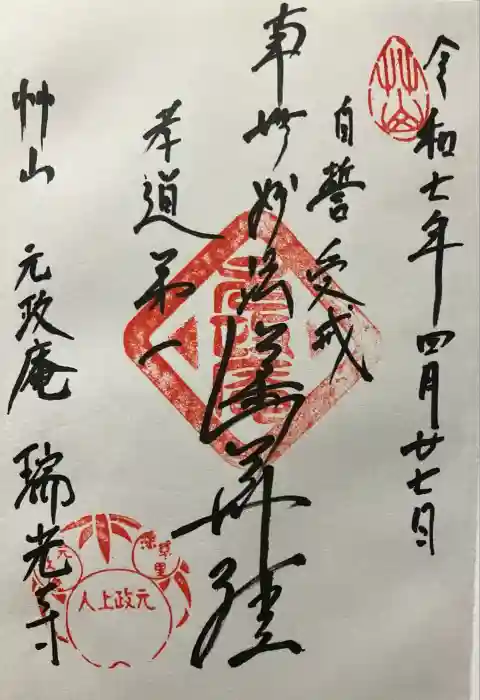 令和七年四月廿七日
自誓受戒
南無妙法蓮華経
孝道第一
艸山 元政庵 瑞光寺
艸山
元政庵
深草里
元政上人